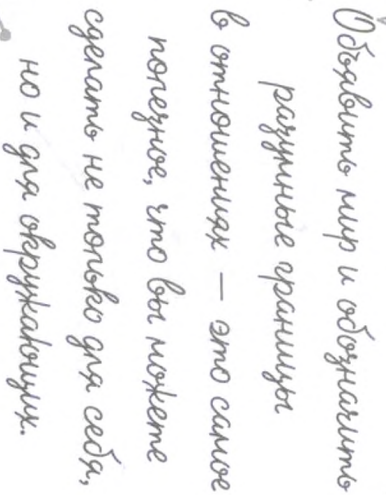 Объявить мир и обозначить
разумные границы
в отношениях — это самое
полезное, что вы можете
сделать не только для себя,
но и для окружающих.